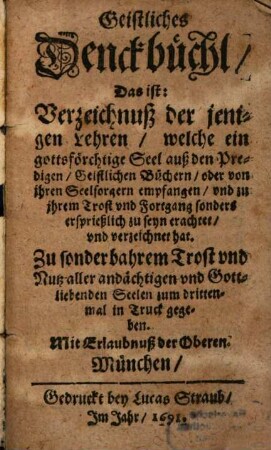 Geistliches
Denckbüchl/
Das ist:
Verzeichnuß der jeni-
gen Lehren / welche ein
gottsförchtige Seel auß den Pre-
digen / Geistlichen Büchern / oder von
jhren Seelsorgern empfangen / vnd zu
jhrem Trost vnd Fortgang sonders
ersprießlich zu seyn erachtet/
vnd verzeichnet hat.
Zu sonderbahrem Trost vnd
Nutz aller andächtigen vnd Gott-
liebenden Seelen zum dritten-
mal in Truck gege-
ben.
Mit Erlaubnuß der Oberen.
München/
Gedruckt bey Lucas Straub/
Im Jahr / 1691.